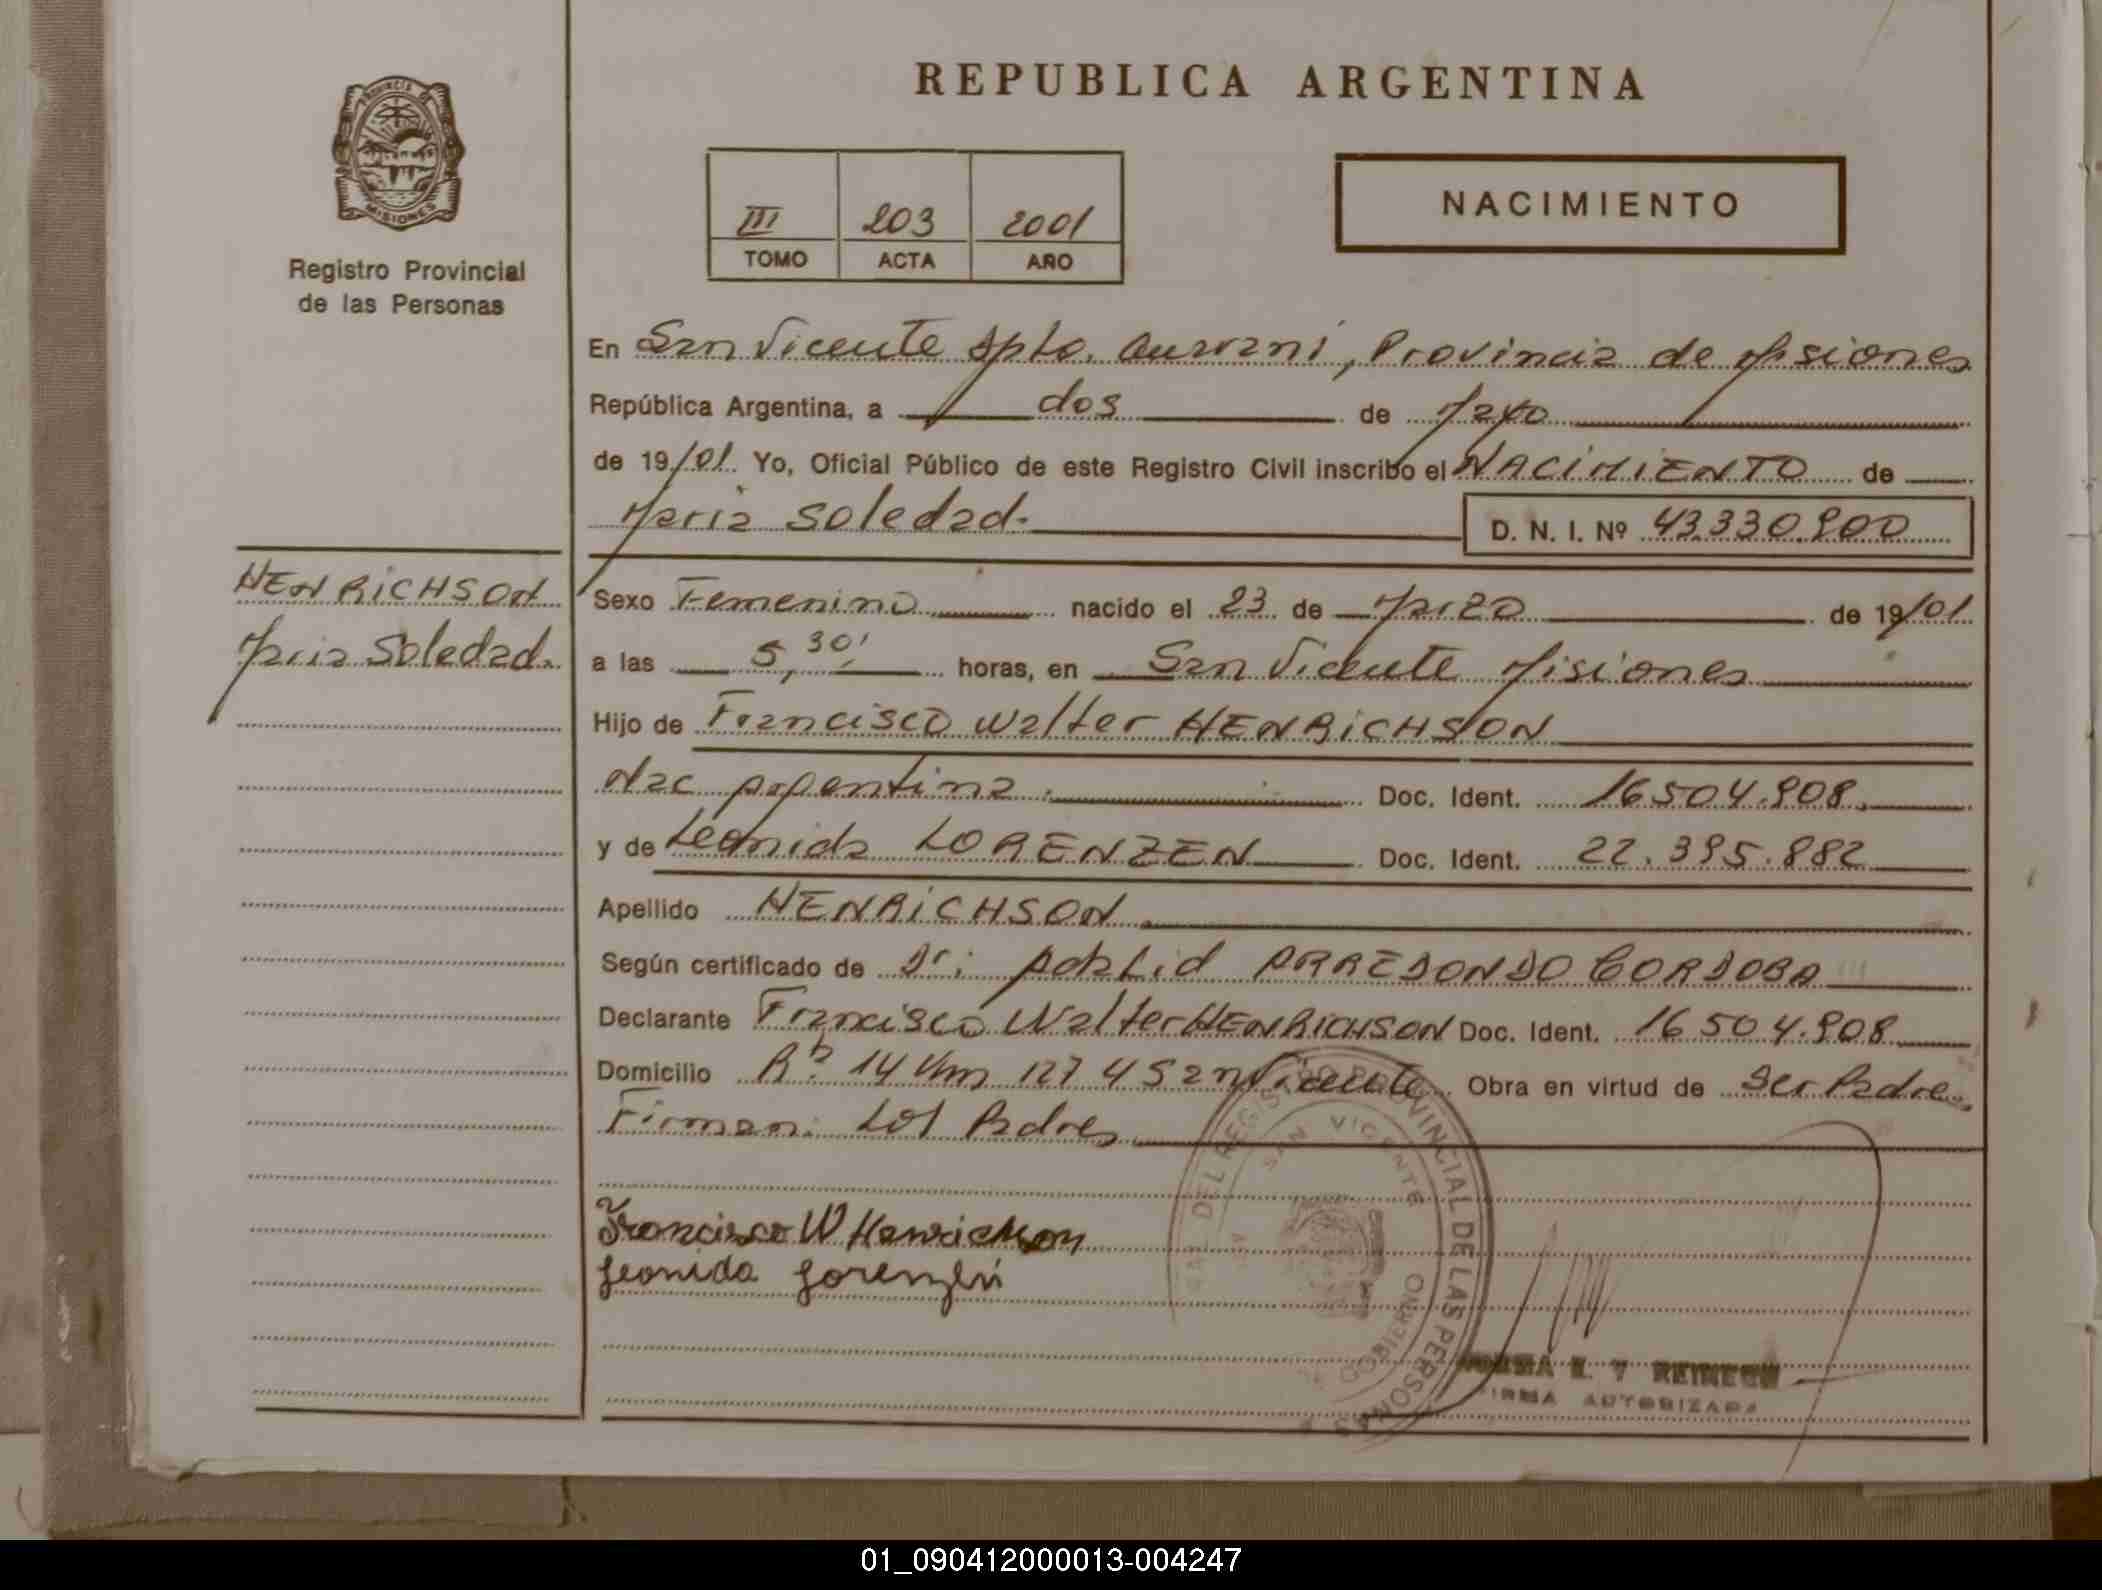 REPUBLICA ARGENTINA
PROVINCIA DE
MISIONES
Registro Provincial
de las Personas
III 203 2001
TOMO ACTA AÑO
NACIMIENTO
En San Vicente Dpto. Guarani, Provincia de Misiones
República Argentina, a dos de Mayo
de 19/01. Yo, Oficial Público de este Registro Civil inscribo el NACIMIENTO de
Maria Soledad.
D. N. I. Nº 43.330.900
HENRICHSON
Maria Soledad.
Sexo Femenino nacido el 23 de Marzo de 19/01
a las 5,30' horas, en San Vicente Misiones
Hijo de Francisco Walter HENRICHSON
Nac Argentina. Doc. Ident. 16504.908.
y de Leonida LORENZEN Doc. Ident. 22.395.882
Apellido HENRICHSON
Según certificado de Dr: ARREDONDO CORDOBA
Declarante Francisco Walter HENRICHSON Doc. Ident. 16504.908
Domicilio Rª 14 Km 127 4 San Vicente Obra en virtud de Ser Padre
Firman: Los Padres
Francisco W Henrichson
Leonida Lorenzen
DEL REGISTRO PROVINCIAL DE LAS PERSONAS
SAN VICENTE
GOBIERNO
REINECH
FIRMA AUTORIZADA
01_090412000013-004247